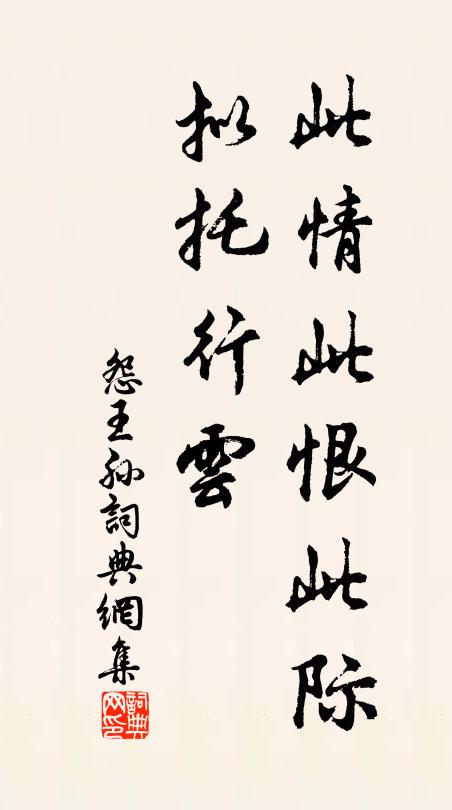 此情此恨此际
拟托行雲
怨王孙詞典網集
詞典网印